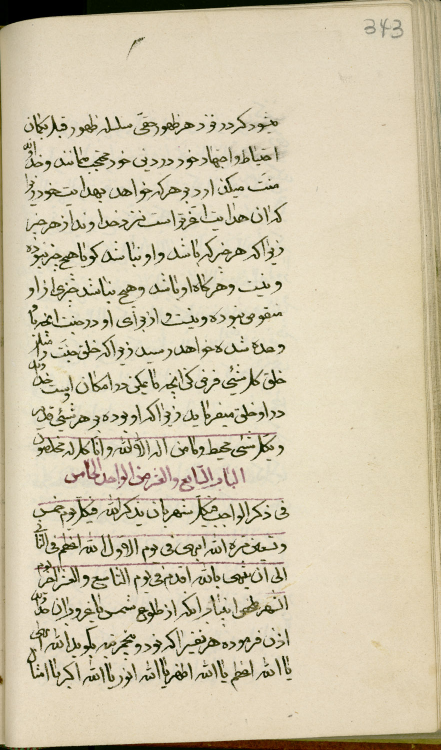 343
میبود کردر نزد هر ظهور حقی سلسله ظهور قبل بگمان
احتیاط و اجتهاد خود در دین خود محتجب میمانند و خداوند
منت میکند در هر که خواهد بهدایت خود زیرا
که ان هدایت اقرب است نزد خداوند از هر خیر
زیرا که هر خیر که باشد و او نباشد گویا هیچ خیر نبوده
و نیست و هرگاه او باشد و هیچ نباشد خیری از او
منفی نبوده و نیست و از برای او در جنت انچه
وعده شده خواهد رسید زیرا که خلق جنت را مثل
خلق کلشیء فرض کن انچه ما یمکن در امکان است
در او خلق میفرماید زیرا که او بوده بر هر شیء قدیر
و بکل شیء محیط و ما من اله الا الله و انا کل له مخلصون
الباب السابع والعشر من الواحد الخامس
فی ذکر الواجب فی کل شهر بان یذکر الله فی کل یوم خمس
و تسعین مرة الله ابهی فی یوم الاول الله اعظم فی الثانی
الی ان ینتهی بالله اقدم فی یوم التاسع والعشر اخر یوم
الشهر ملخص این باب انکه از طلوع شمس تا غروب ان
اذن فرموده هر نفسی را که نود و پنج مرتبه بگوید الله ابهی
یا الله اعظم یا الله اظهر یا الله انور یا الله اکبر یا امثال